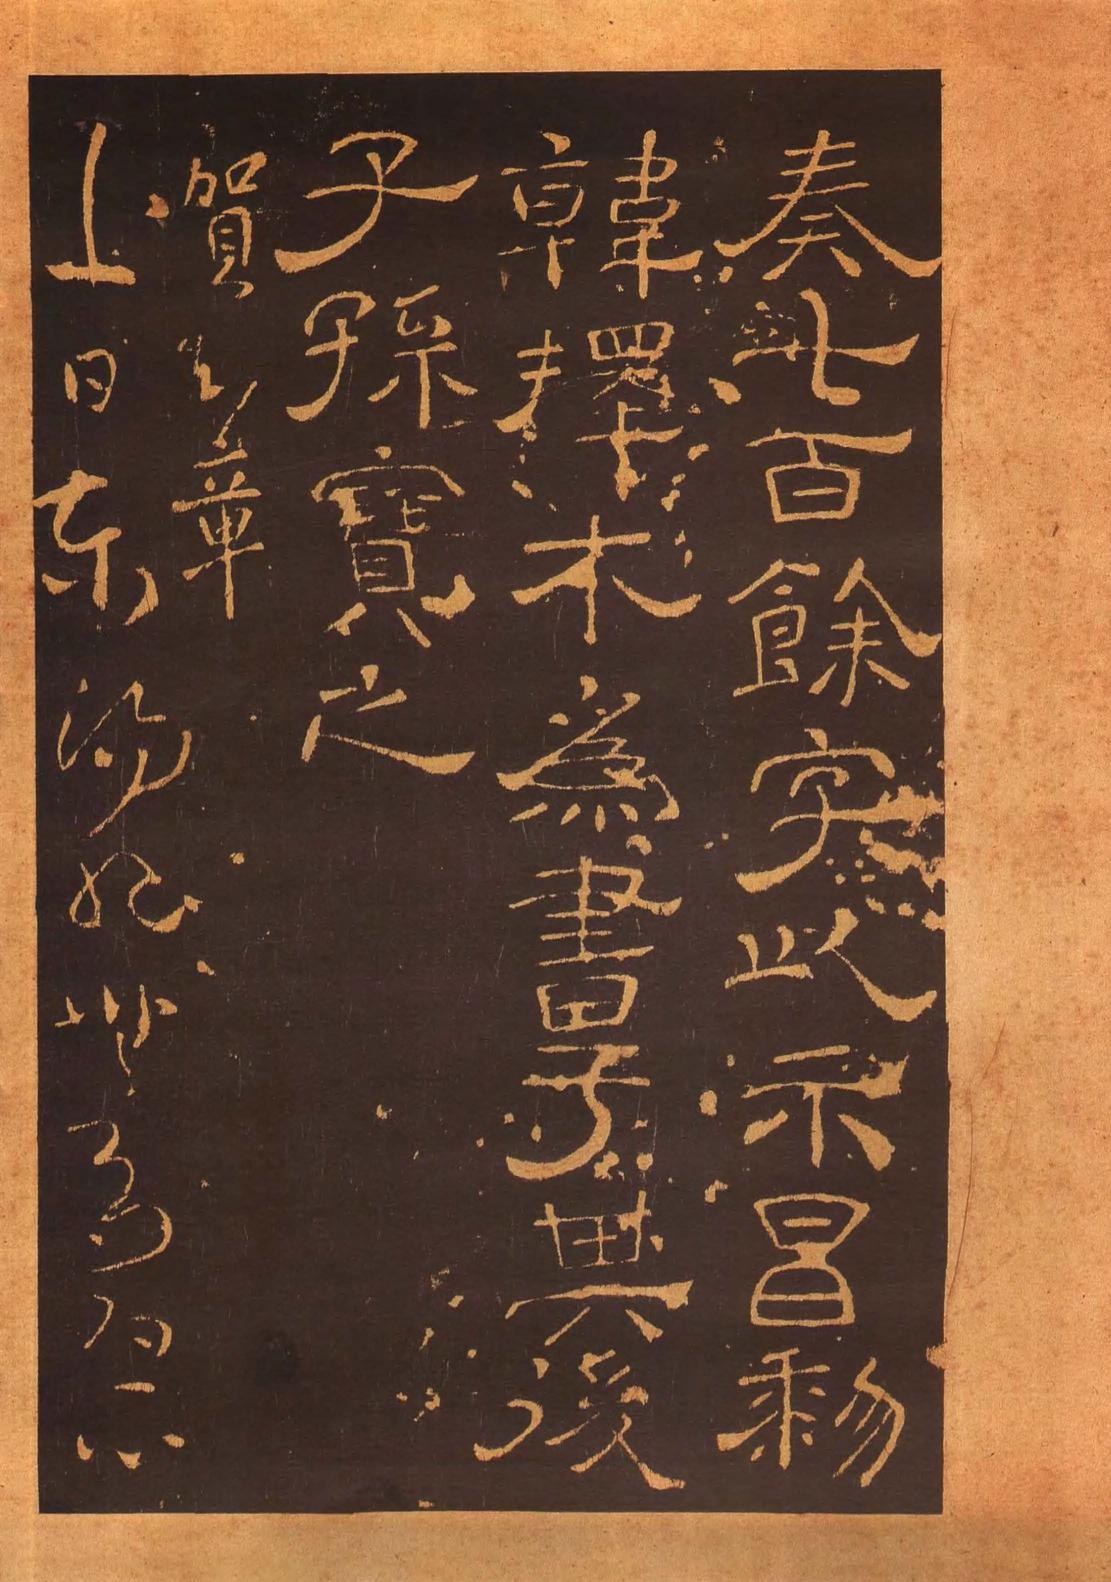 奏此百餘字以示昌黎
韓擇木為書于其後
子孫寶之
賀知章
上日